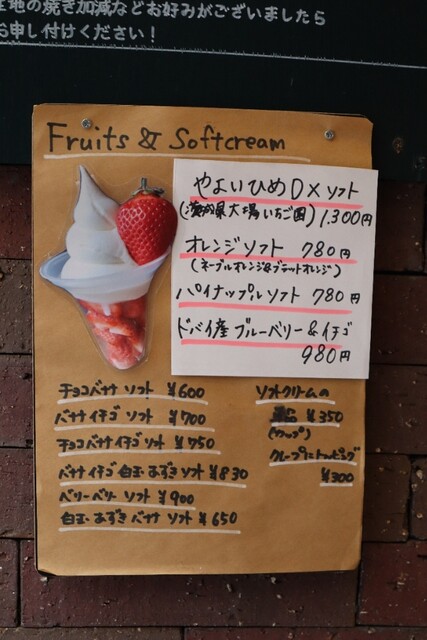 の焼き加減などお好みがございましたら
お申し付けください！
Fruits & Softcream
やよいひめDXソフト
いちご園) 1,300円
オレンジソフト 780円
(ネーブルオレンジ&ブラッドオレンジ)
パイナップルソフト 780円
ドバイ産ブルーベリー&イチゴ
980円
チョコバナナ ソフト ¥600
バナナイチゴ ソフト ¥700
チョコバナナイチゴ ソフト ¥750
バナナイチゴ白玉あずきソフト¥830
ベリーベリー ソフト ¥900
白玉あずきバナナ ソフト ¥650
ソフトクリームの
¥350
(カップ)
クレープにトッピング
¥300